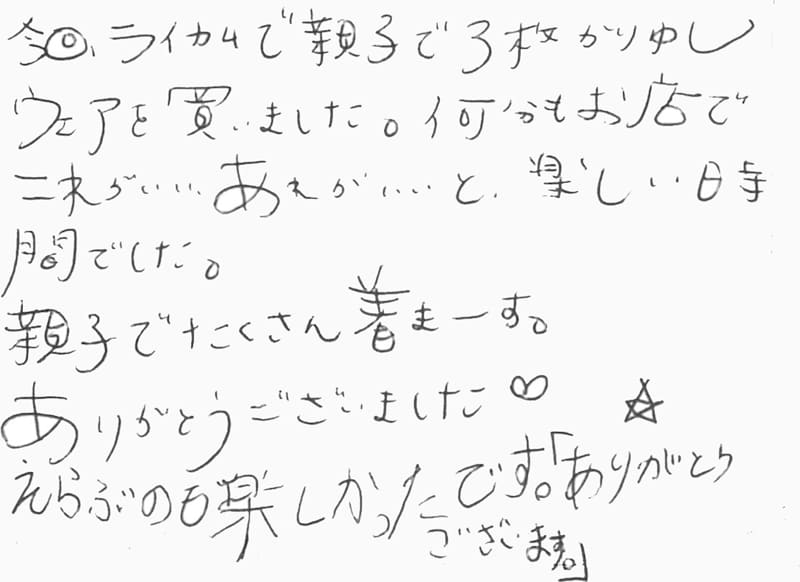 今回、ライカムで親子で3枚かりゆし
ウェアを買いました。何分もお店で
これがいい、あれがいいと、楽しい時
間でした。
親子でたくさん着まーす。
ありがとうございました♡ ☆
えらぶのも楽しかったです。「ありがとう
ございます。」